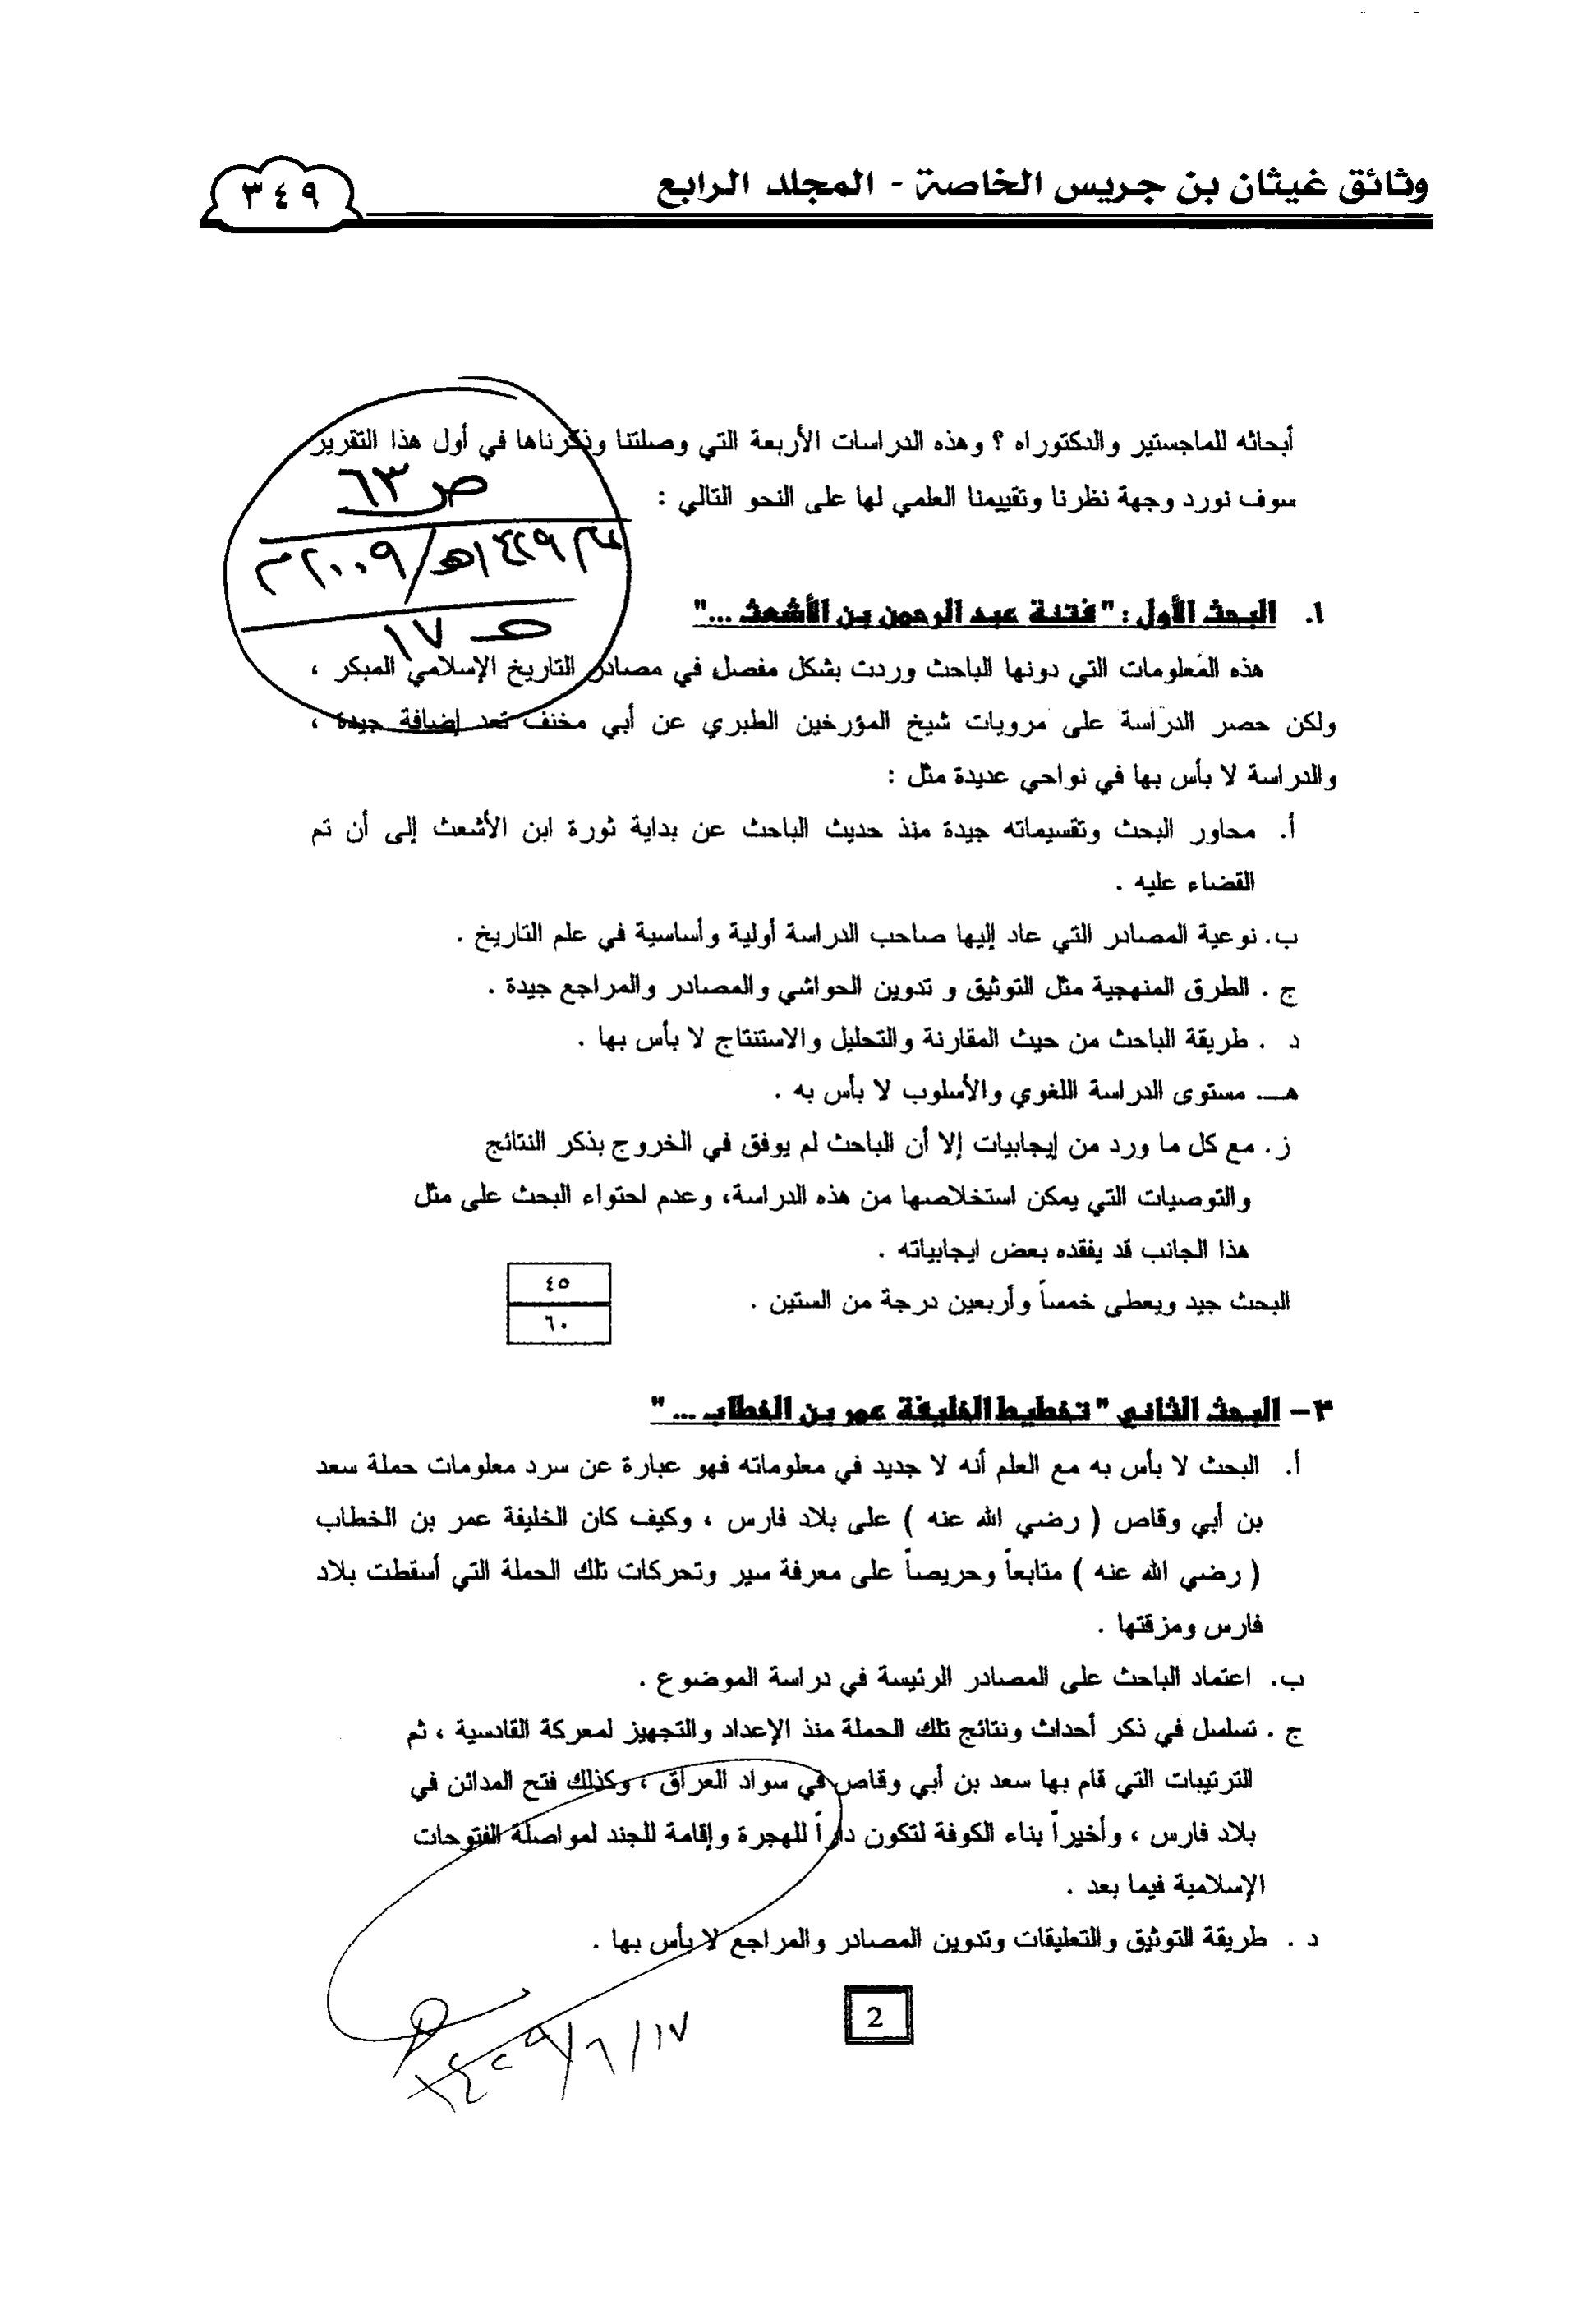 وثائق غيثان بن جريس الخاصة - المجلد الرابع
٣٤٩
أبحاثه للماجستير والدكتوراه ؟ وهذه الدراسات الأربعة التي وصلتنا وذكرناها في أول هذا التقرير
سوف نورد وجهة نظرنا وتقييمنا العلمي لها على النحو التالي :
ص ٦٣
١٤٢٩هـ/٢٠٠٩م
ص ١٧
١. البحث الأول : "فتنة عبد الرحمن بن الأشعث ..."
هذه المعلومات التي دونها الباحث وردت بشكل مفصل في مصادر التاريخ الإسلامي المبكر ،
ولكن حصر الدراسة على مرويات شيخ المؤرخين الطبري عن أبي مخنف تعد إضافة جيدة ،
والدراسة لا بأس بها في نواحي عديدة مثل :
أ. محاور البحث وتقسيماته جيدة منذ حديث الباحث عن بداية ثورة ابن الأشعث إلى أن تم
القضاء عليه .
ب. نوعية المصادر التي عاد إليها صاحب الدراسة أولية وأساسية في علم التاريخ .
ج . الطرق المنهجية مثل التوثيق و تدوين الحواشي والمصادر والمراجع جيدة .
د . طريقة الباحث من حيث المقارنة والتحليل والاستنتاج لا بأس بها .
هـ. مستوى الدراسة اللغوي والأسلوب لا بأس به .
ز. مع كل ما ورد من إيجابيات إلا أن الباحث لم يوفق في الخروج بذكر النتائج
والتوصيات التي يمكن استخلاصها من هذه الدراسة، وعدم احتواء البحث على مثل
هذا الجانب قد يفقده بعض ايجابياته .
البحث جيد ويعطى خمساً وأربعين درجة من الستين .
٤٥
٦٠
٣- البحث الثاني " تخطيط الخليفة عمر بن الخطاب ... "
أ. البحث لا بأس به مع العلم أنه لا جديد في معلوماته فهو عبارة عن سرد معلومات حملة سعد
بن أبي وقاص ( رضي الله عنه ) على بلاد فارس ، وكيف كان الخليفة عمر بن الخطاب
( رضي الله عنه ) متابعاً وحريصاً على معرفة سير وتحركات تلك الحملة التي أسقطت بلاد
فارس ومزقتها .
ب. اعتماد الباحث على المصادر الرئيسة في دراسة الموضوع .
ج . تسلسل في ذكر أحداث ونتائج تلك الحملة منذ الإعداد والتجهيز لمعركة القادسية ، ثم
الترتيبات التي قام بها سعد بن أبي وقاص في سواد العراق ، وكذلك فتح المدائن في
بلاد فارس ، وأخيراً بناء الكوفة لتكون داراً للهجرة وإقامة للجند لمواصلة الفتوحات
الإسلامية فيما بعد .
د . طريقة التوثيق والتعليقات وتدوين المصادر والمراجع لا بأس بها .
2
١٤٢٩/٦/١٧